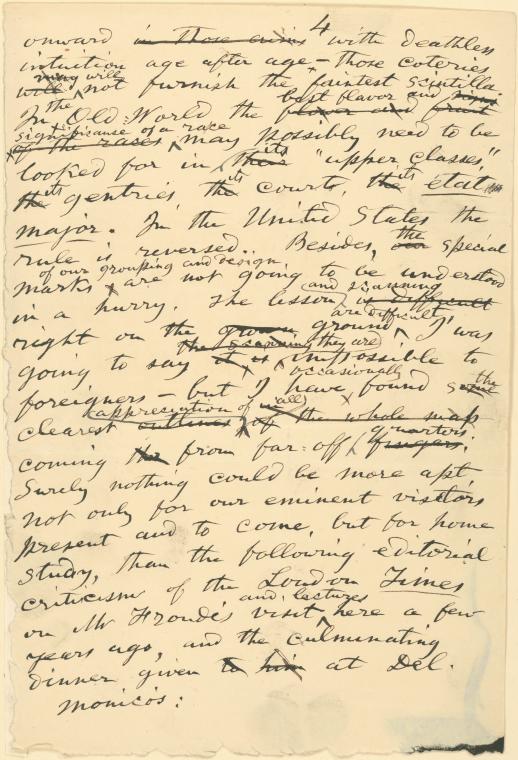 4
onward in those aims with deathless
intuition age after age – those coteries
may will
will not furnish the faintest scintilla.
the best flavor and
In Old World the flower and fruit
significance of a race
of the races may possibly need to be
its
looked for in their "upper classes,"
its its its
the gentries, the courts, the état
major. In the United States the
the
rule is reversed. Besides, our special
of our grouping and design
marks are not going to be understood
and scanning
in a hurry. The lesson is difficult
are difficult
right on the ground I was
the scanning they are
going to say it is impossible to
occasionally
foreigners – but I have found some the
appreciation of all
clearest outlines of the whole map
quarters
coming from far-off fingers.
Surely nothing could be more apt,
not only for our eminent visitors
present and to come, but for home
study, than the following editorial
criticism of the London Times
and lectures
on Mr Froude's visit here a few
years ago, and the culminating
dinner given to him at Del-
monico's: